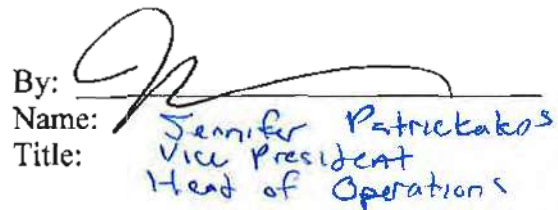 By:
Name: Jennifer Patrickakos
Title: Vice President
Head of Operations